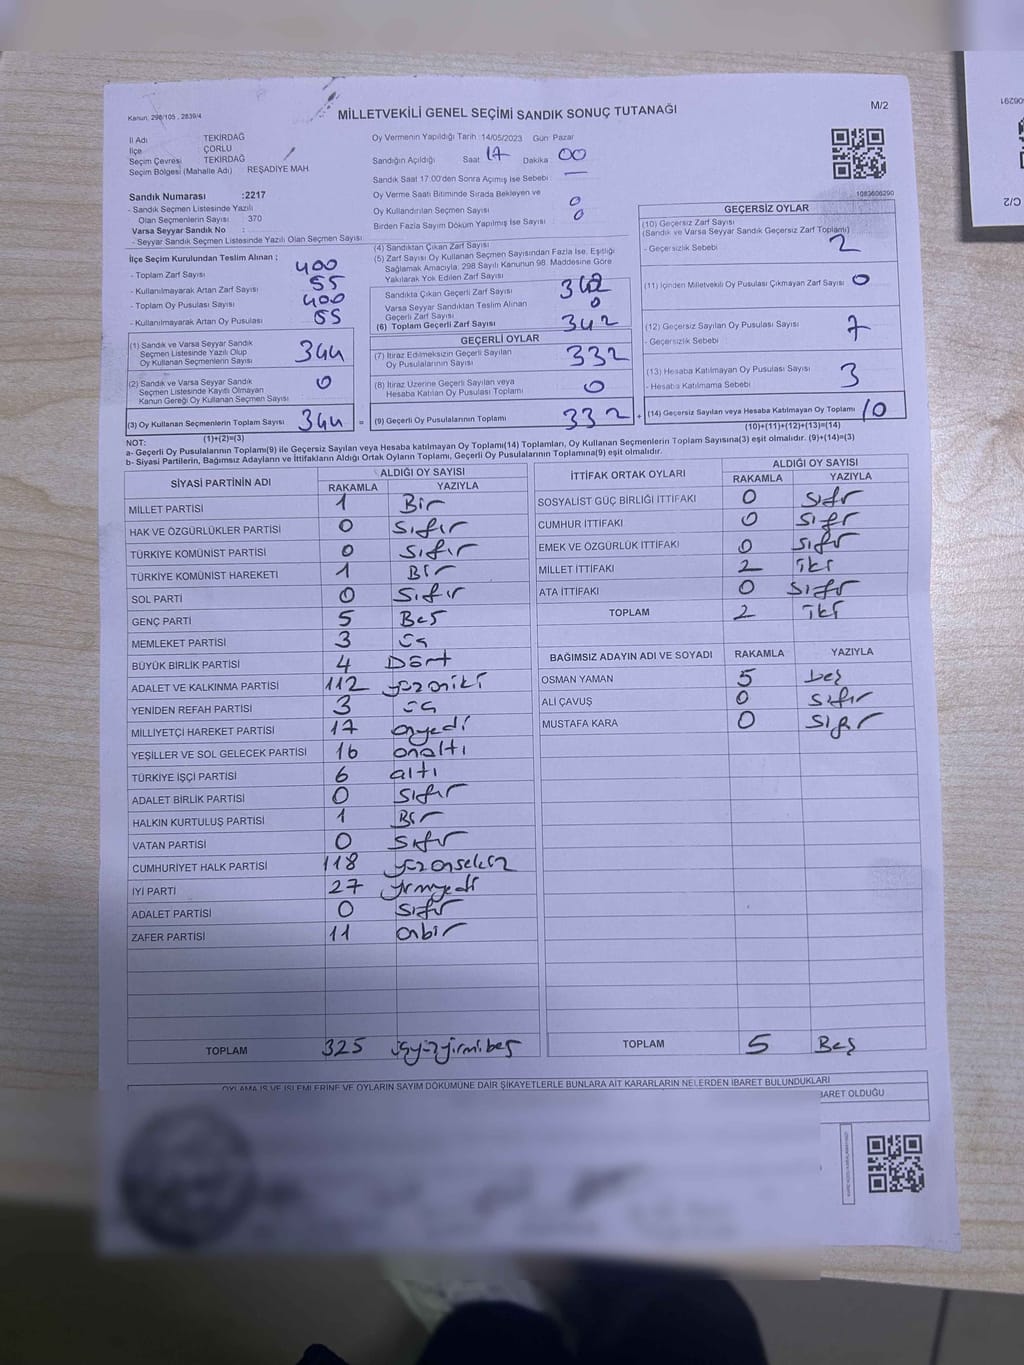 Kanun, 298/105 , 2839/4
MİLLETVEKİLİ GENEL SEÇİMİ SANDIK SONUÇ TUTANAĞI
M/2
İl Adı TEKİRDAĞ
İlçe ÇORLU
Seçim Çevresi TEKİRDAĞ
Seçim Bölgesi (Mahalle Adı) REŞADİYE MAH.
Oy Vermenin Yapıldığı Tarih :14/05/2023 Gün Pazar
Sandığın Açıldığı Saat 17 Dakika 00
Sandık Saat 17:00'den Sonra Açımış İse Sebebi : —
Oy Verme Saati Bitiminde Sırada Bekleyen ve
Oy Kullandırılan Seçmen Sayısı 0
Birden Fazla Sayım Döküm Yapılmış İse Sayısı : 0
1083606290
Sandık Numarası :2217
- Sandık Seçmen Listesinde Yazılı
Olan Seçmenlerin Sayısı : 370
Varsa Seyyar Sandık No :
- Seyyar Sandık Seçmen Listesinde Yazılı Olan Seçmen Sayısı
İlçe Seçim Kurulundan Teslim Alınan ;
- Toplam Zarf Sayısı 400
- Kullanılmayarak Artan Zarf Sayısı 55
- Toplam Oy Pusulası Sayısı 400
- Kullanılmayarak Artan Oy Pusulası 55
(1) Sandık ve Varsa Seyyar Sandık
Seçmen Listesinde Yazılı Olup
Oy Kullanan Seçmenlerin Sayısı 344
(2) Sandık ve Varsa Seyyar Sandık
Seçmen Listesinde Kayıtlı Olmayan
Kanun Gereği Oy Kullanan Seçmen Sayısı 0
(3) Oy Kullanan Seçmenlerin Toplam Sayısı 344 =
(1)+(2)=(3)
(4) Sandıktan Çıkan Zarf Sayısı
(5) Zarf Sayısı Oy Kullanan Seçmen Sayısından Fazla İse, Eşitliği
Sağlamak Amacıyla, 298 Sayılı Kanunun 98. Maddesine Göre
Yakılarak Yok Edilen Zarf Sayısı
Sandıkta Çıkan Geçerli Zarf Sayısı 342
Varsa Seyyar Sandıktan Teslim Alınan
Geçerli Zarf Sayısı 0
(6) Toplam Geçerli Zarf Sayısı 342
GEÇERLİ OYLAR
(7) İtiraz Edilmeksizin Geçerli Sayılan
Oy Pusulalarının Sayısı 332
(8) İtiraz Üzerine Geçerli Sayılan veya
Hesaba Katılan Oy Pusulası Toplamı 0
(9) Geçerli Oy Pusulalarının Toplamı 332 +
GEÇERSİZ OYLAR
(10) Geçersiz Zarf Sayısı
(Sandık ve Varsa Seyyar Sandık Geçersiz Zarf Toplamı)
- Geçersizlik Sebebi : 2
(11) İçinden Milletvekili Oy Pusulası Çıkmayan Zarf Sayısı 0
(12) Geçersiz Sayılan Oy Pusulası Sayısı
- Geçersizlik Sebebi : 7
(13) Hesaba Katılmayan Oy Pusulası Sayısı
- Hesaba Katılmama Sebebi : 3
(14) Geçersiz Sayılan veya Hesaba Katılmayan Oy Toplamı 10
(10)+(11)+(12)+(13)=(14)
NOT:
a- Geçerli Oy Pusulalarının Toplamı(9) ile Geçersiz Sayılan veya Hesaba katılmayan Oy Toplamı(14) Toplamları, Oy Kullanan Seçmenlerin Toplam Sayısına(3) eşit olmalıdır. (9)+(14)=(3)
b- Siyasi Partilerin, Bağımsız Adayların ve İttifakların Aldığı Ortak Oyların Toplamı, Geçerli Oy Pusulalarının Toplamına(9) eşit olmalıdır.
SİYASİ PARTİNİN ADI ALDIĞI OY SAYISI
RAKAMLA YAZIYLA
MİLLET PARTİSİ 1 Bir
HAK VE ÖZGÜRLÜKLER PARTİSİ 0 Sıfır
TÜRKİYE KOMÜNİST PARTİSİ 0 Sıfır
TÜRKİYE KOMÜNİST HAREKETİ 1 Bir
SOL PARTİ 0 Sıfır
GENÇ PARTİ 5 Beş
MEMLEKET PARTİSİ 3 üç
BÜYÜK BİRLİK PARTİSİ 4 Dört
ADALET VE KALKINMA PARTİSİ 112 yüzoniki
YENİDEN REFAH PARTİSİ 3 üç
MİLLİYETÇİ HAREKET PARTİSİ 17 onyedi
YEŞİLLER VE SOL GELECEK PARTİSİ 16 onaltı
TÜRKİYE İŞÇİ PARTİSİ 6 altı
ADALET BİRLİK PARTİSİ 0 Sıfır
HALKIN KURTULUŞ PARTİSİ 1 Bir
VATAN PARTİSİ 0 Sıfır
CUMHURİYET HALK PARTİSİ 118 yüzonsekiz
İYİ PARTİ 27 yirmiyedi
ADALET PARTİSİ 0 Sıfır
ZAFER PARTİSİ 11 onbir
TOPLAM 325 üçyüzyirmibeş
İTTİFAK ORTAK OYLARI ALDIĞI OY SAYISI
RAKAMLA YAZIYLA
SOSYALİST GÜÇ BİRLİĞİ İTTİFAKI 0 Sıfır
CUMHUR İTTİFAKI 0 Sıfır
EMEK VE ÖZGÜRLÜK İTTİFAKI 0 Sıfır
MİLLET İTTİFAKI 2 iki
ATA İTTİFAKI 0 Sıfır
TOPLAM 2 iki
BAĞIMSIZ ADAYIN ADI VE SOYADI RAKAMLA YAZIYLA
OSMAN YAMAN 5 beş
ALİ ÇAVUŞ 0 Sıfır
MUSTAFA KARA 0 Sıfır
TOPLAM 5 Beş
OYLAMA İŞ VE İŞLEMLERİNE VE OYLARIN SAYIM DÖKÜMÜNE DAİR ŞİKAYETLERLE BUNLARA AİT KARARLARIN NELERDEN İBARET BULUNDUKLARI
BARET OLDUĞU
C/2